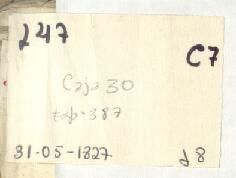 247
C7
Caja 30
Exp-387
31-05-1827
d8